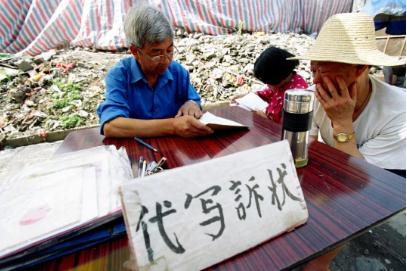 代写訴状